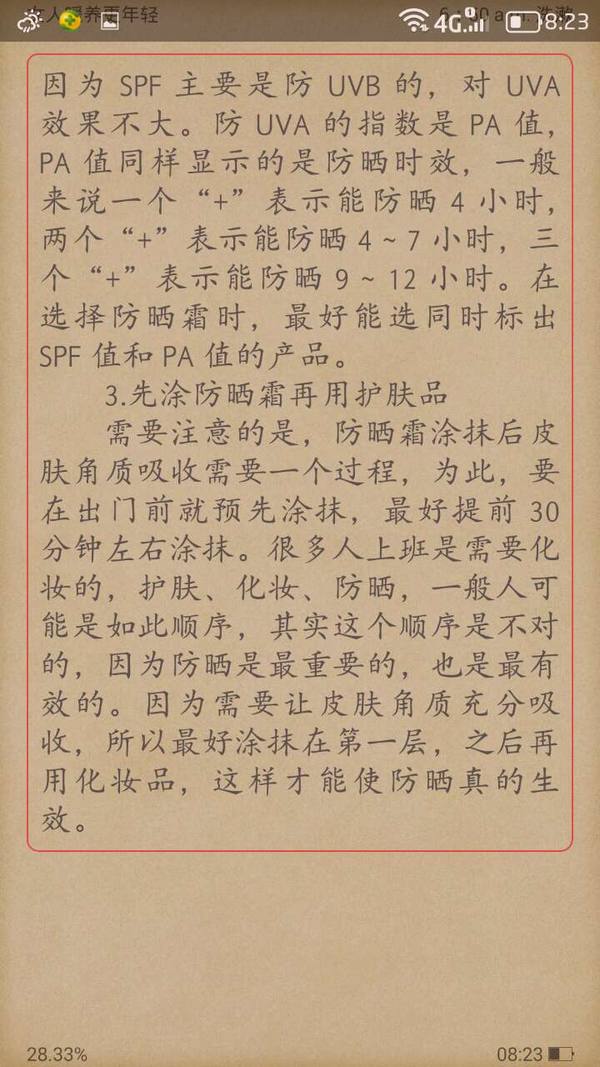 女人嫒养更年轻
4G 8:23
因为 SPF 主要是防 UVB 的，对 UVA
效果不大。防 UVA 的指数是 PA 值，
PA 值同样显示的是防晒时效，一般
来说一个“+”表示能防晒 4 小时，
两个“+”表示能防晒 4 ~ 7 小时，三
个“+”表示能防晒 9 ~ 12 小时。在
选择防晒霜时，最好能选同时标出
SPF 值和 PA 值的产品。
3.先涂防晒霜再用护肤品
需要注意的是，防晒霜涂抹后皮
肤角质吸收需要一个过程，为此，要
在出门前就预先涂抹，最好提前 30
分钟左右涂抹。很多人上班是需要化
妆的，护肤、化妆、防晒，一般人可
能是如此顺序，其实这个顺序是不对
的，因为防晒是最重要的，也是最有
效的。因为需要让皮肤角质充分吸
收，所以最好涂抹在第一层，之后再
用化妆品，这样才能使防晒真的生
效。
28.33%
08:23